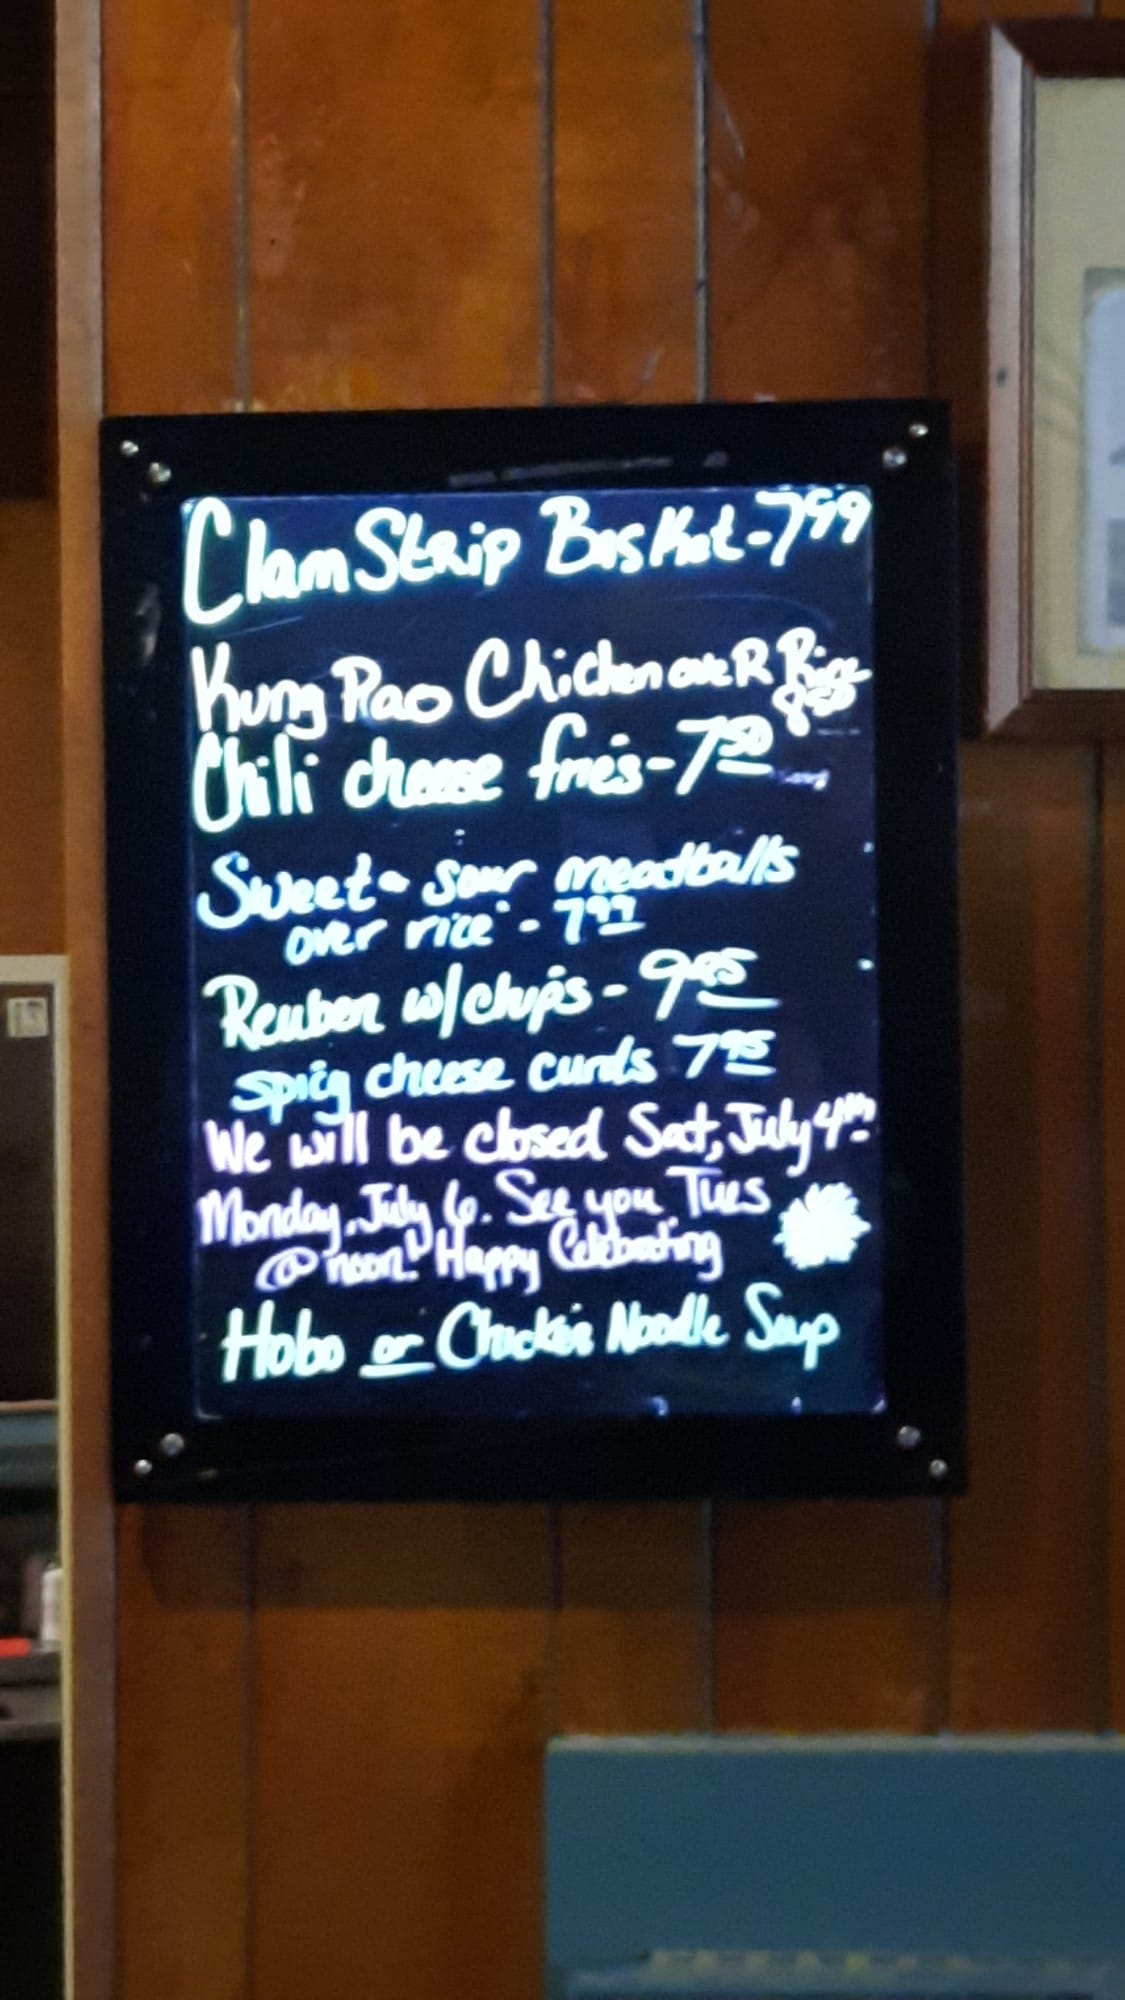 Clam Strip Basket - 7.99
Kung Pao Chicken over Rice
8.50
Chili cheese fries - 7.50
Sweet - sour meatballs
over rice - 7.99
Reuben w/chips - 9.95
spicy cheese curds 7.95
We will be closed Sat, July 4th
Monday, July 6. See you Tues
@ noon! Happy Celebrating
Hobo or Chicken Noodle Soup